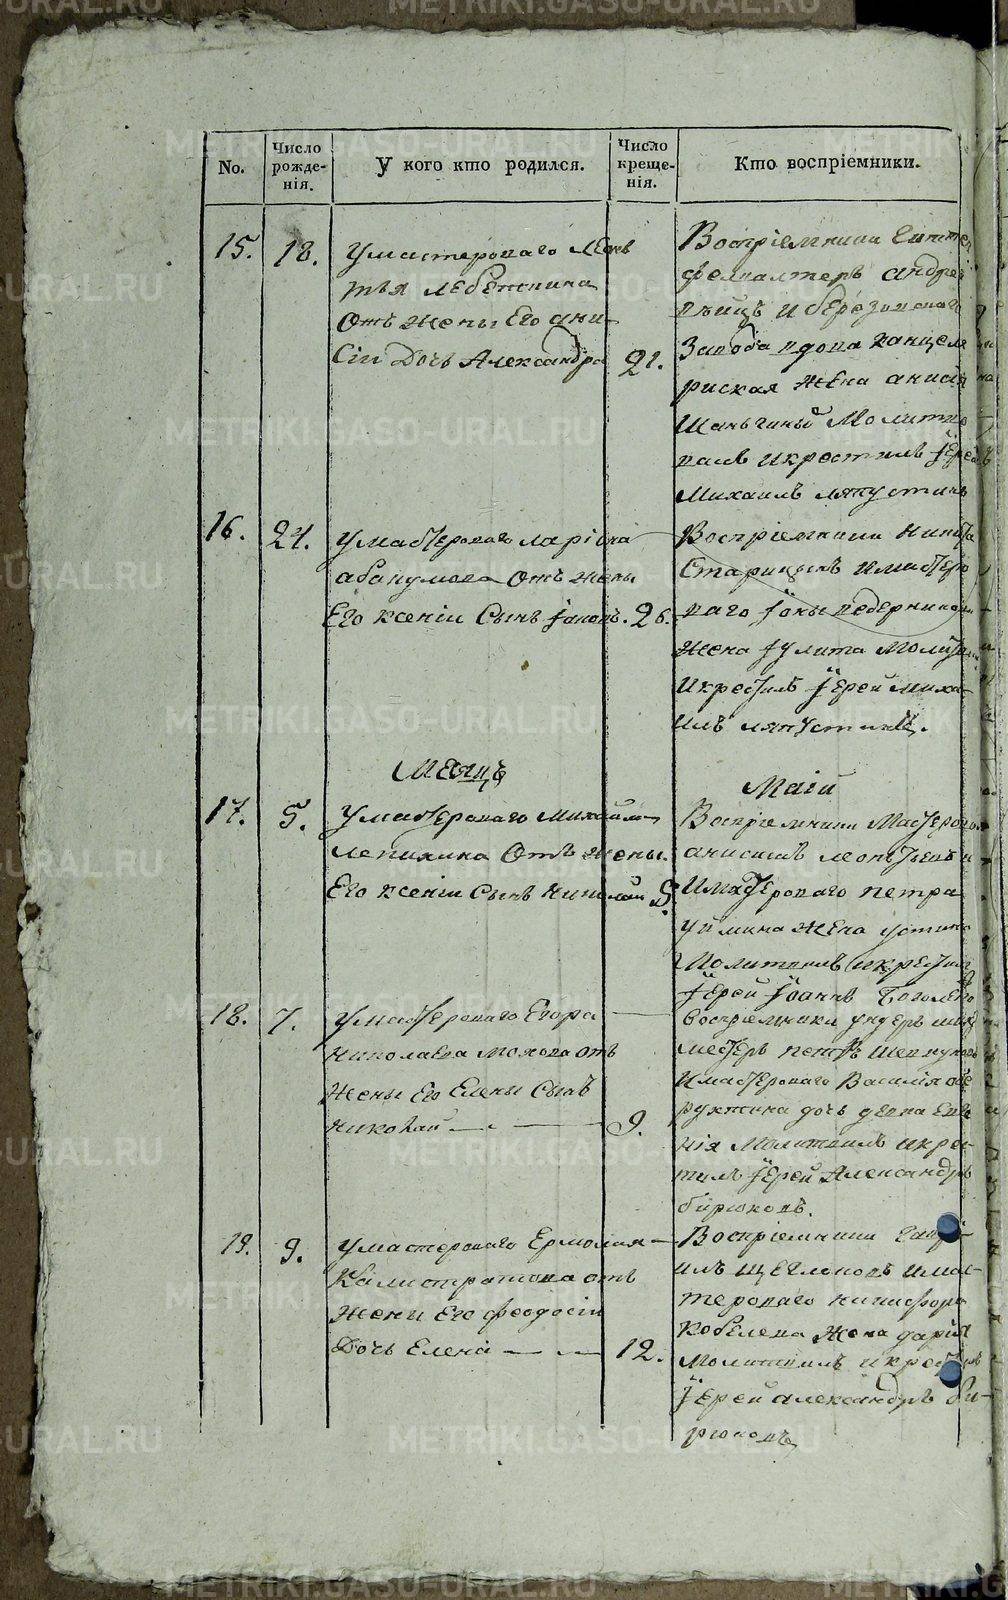 No.
Число рожде-нія.
У кого кто родился.
Число креще-нія.
Кто воспріемники.
15.
18.
У мастероваго Леон
тья Лебеткина
Отъ жены Его ани-
сіи Дочь Александра
21.
Воспріемники
андрей
и березовскаго
завода вдова канцеля
риская жена анисія
Молитво
валъ и крестилъ Іерей
Михаилъ ляпустинъ
16.
24.
У мастероваго ларіона
абакумова Отъ жены
Его ксеніи Сынъ Іаковъ.
26.
Воспріемники никита
Старицынъ и мастеро
ваго Іоны ведерникова
жена Іулита Молитвилъ
и крестилъ Іерей миха-
илъ ляпустинъ.
Месяцъ
Маій
17.
5.
У мастероваго михайлы
лепихина Отъ жены.
Его ксеніи Сынъ николай
9.
Воспріемники Мастеровой
анисимъ леонтьевъ
и мастероваго петра
уймина жена устина
Молитвилъ и крестилъ
Іерей Іоаннъ Боголеповъ
18.
7.
У мастероваго Егора
николаева мохова отъ
жены Его Елены Сынъ
николай
9.
воспріемники ундеръ шихт
местеръ петръ шевкуновъ
и мастероваго Василія обе
рухтина дочь девка Евге
нія Молитвилъ и крес-
тилъ Іерей Александръ
бирюковъ.
19.
9.
У мастероваго Ермолая
Калистратова отъ
жены Его феодосіи
Дочь Елена
12.
Воспріемники гаврі-
илъ щегленовъ и мас-
тероваго никифора
кобелева жена дарія
Молитвилъ и крестилъ
Іерей александръ Би-
рюковъ
METRIKI.GASO-URAL.RU